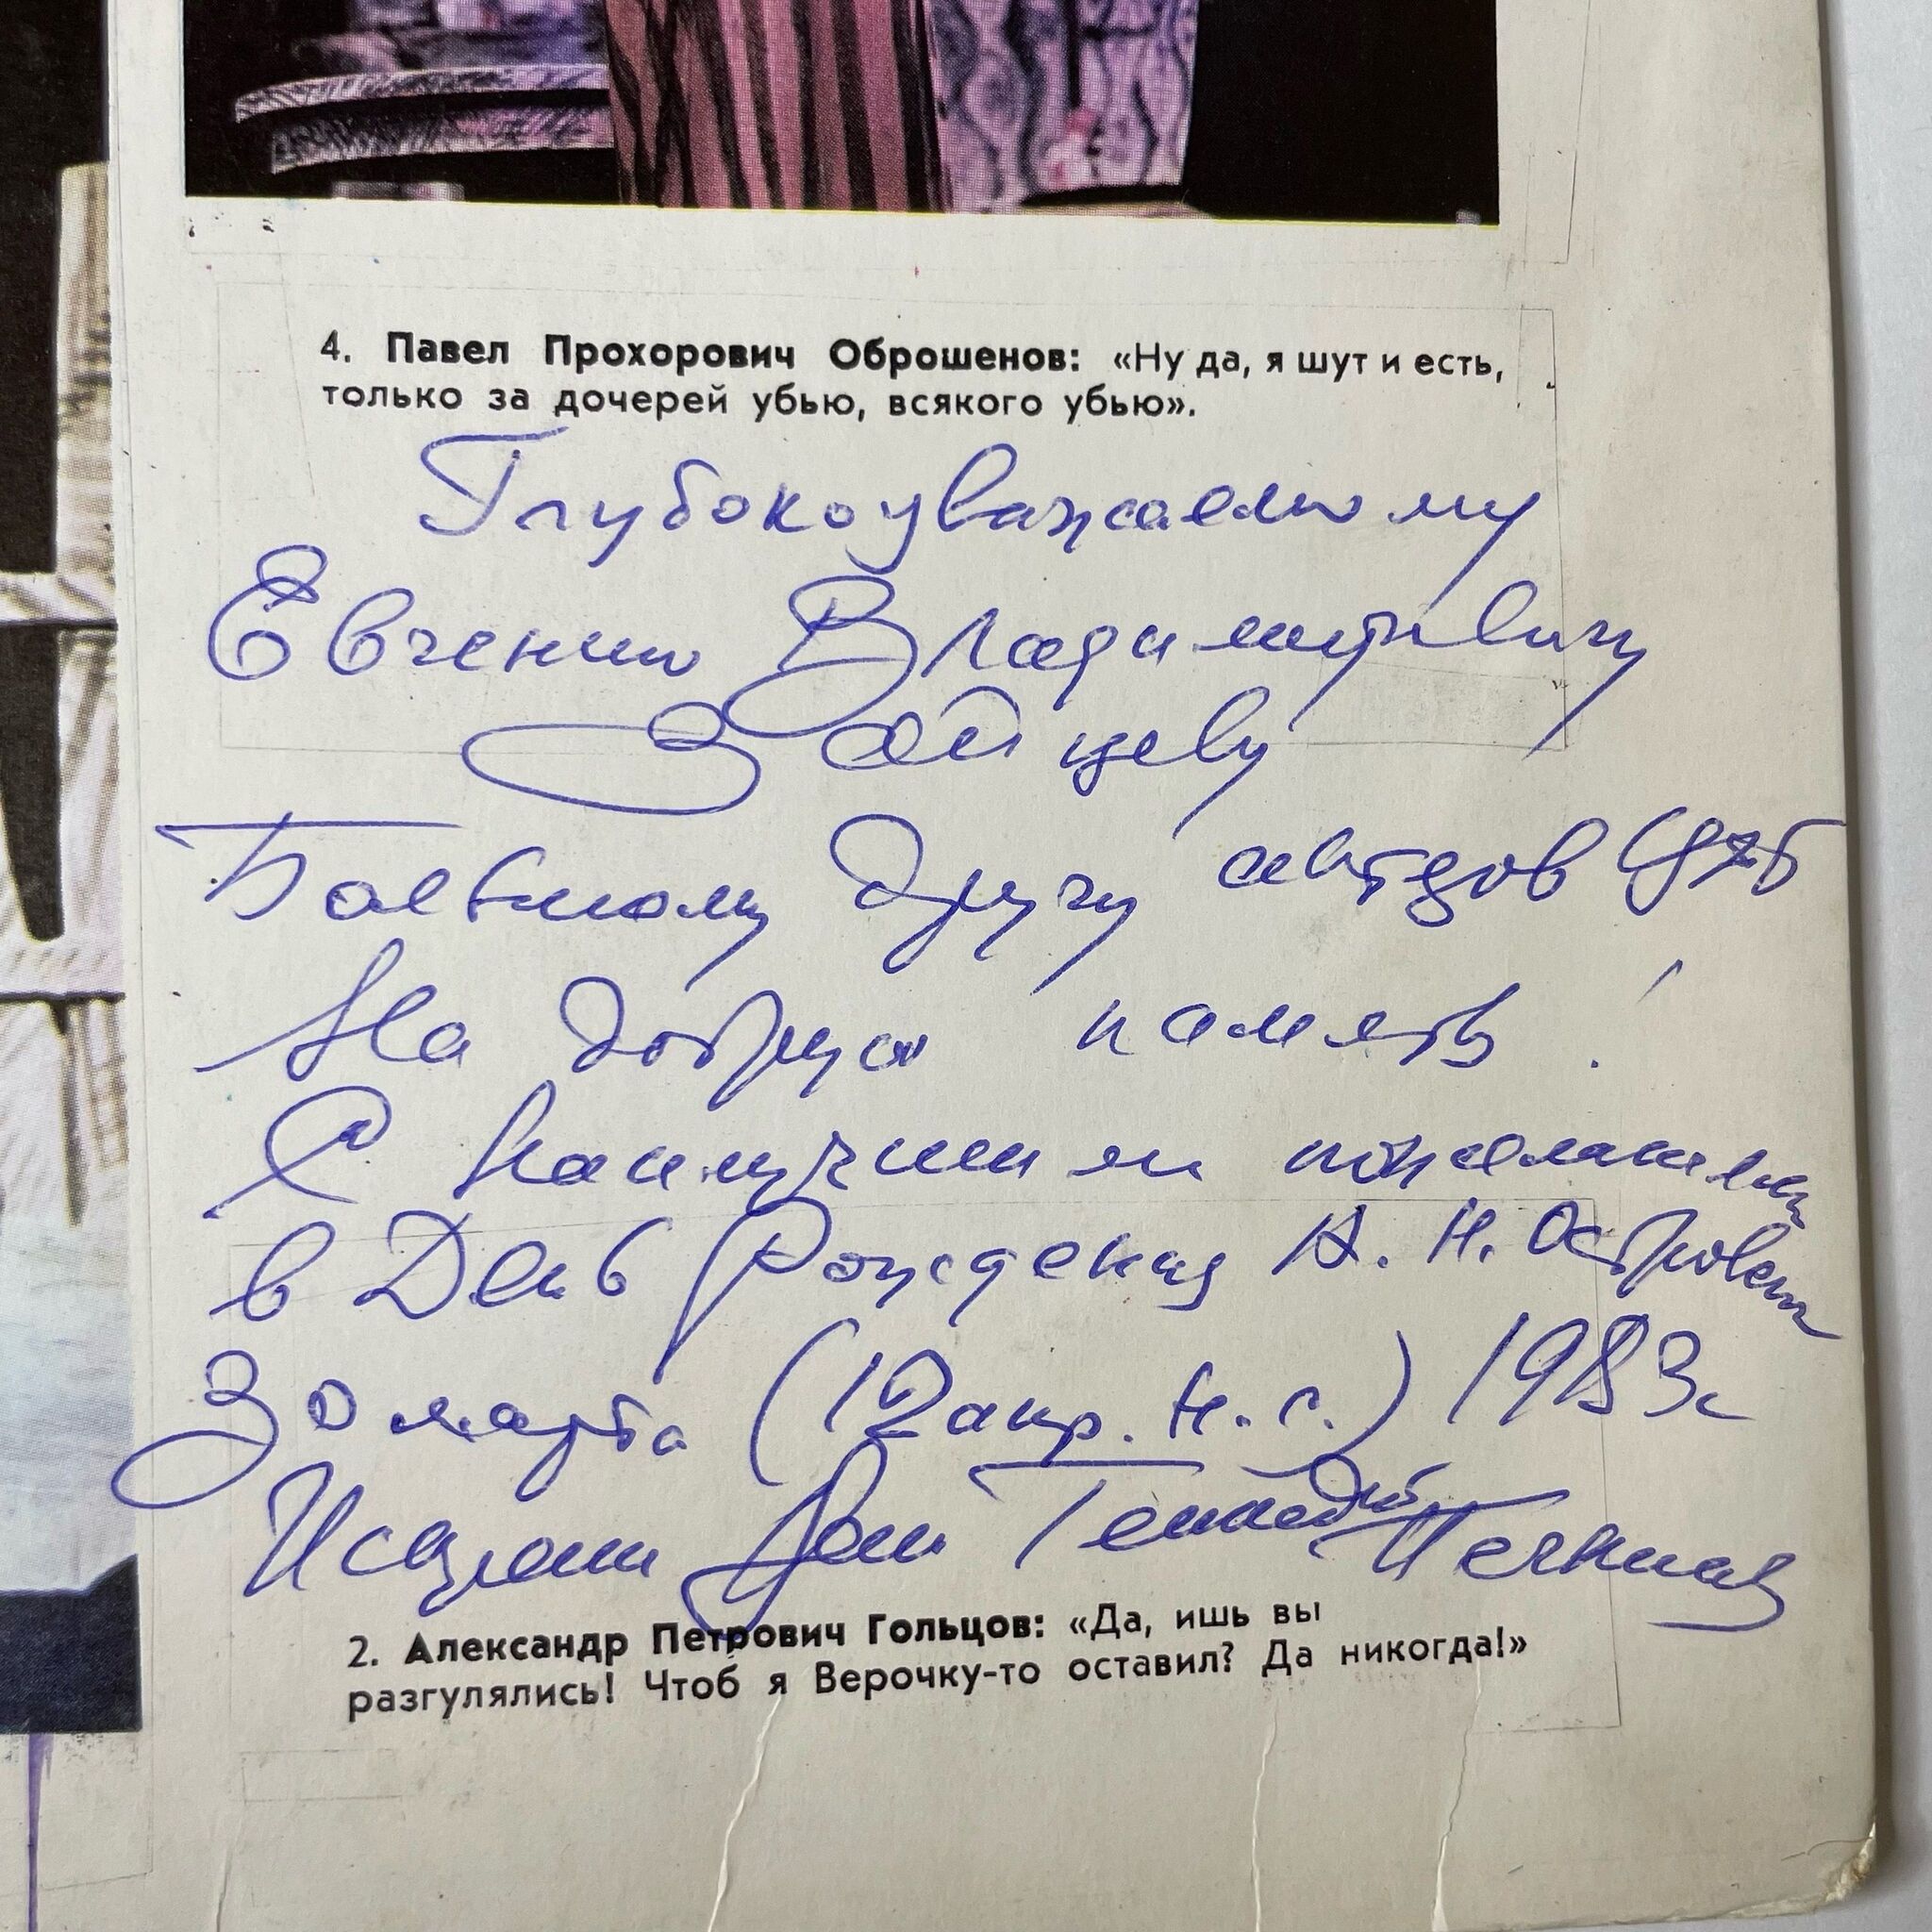 4. Павел Прохорович Оброшенов: «Ну да, я шут и есть,
только за дочерей убью, всякого убью».
Глубокоуважаемому
Евгению Владимировичу
Зайцеву
Большому другу
На добрую память!
С наилучшими пожеланиями
в День Рождения А. Н. Островского
30 марта (12 апр. н. с.) 1983г
Искренне Ваш Геннадий Печников
2. Александр Петрович Гольцов: «Да, ишь вы
разгулялись! Чтоб я Верочку-то оставил? Да никогда!»